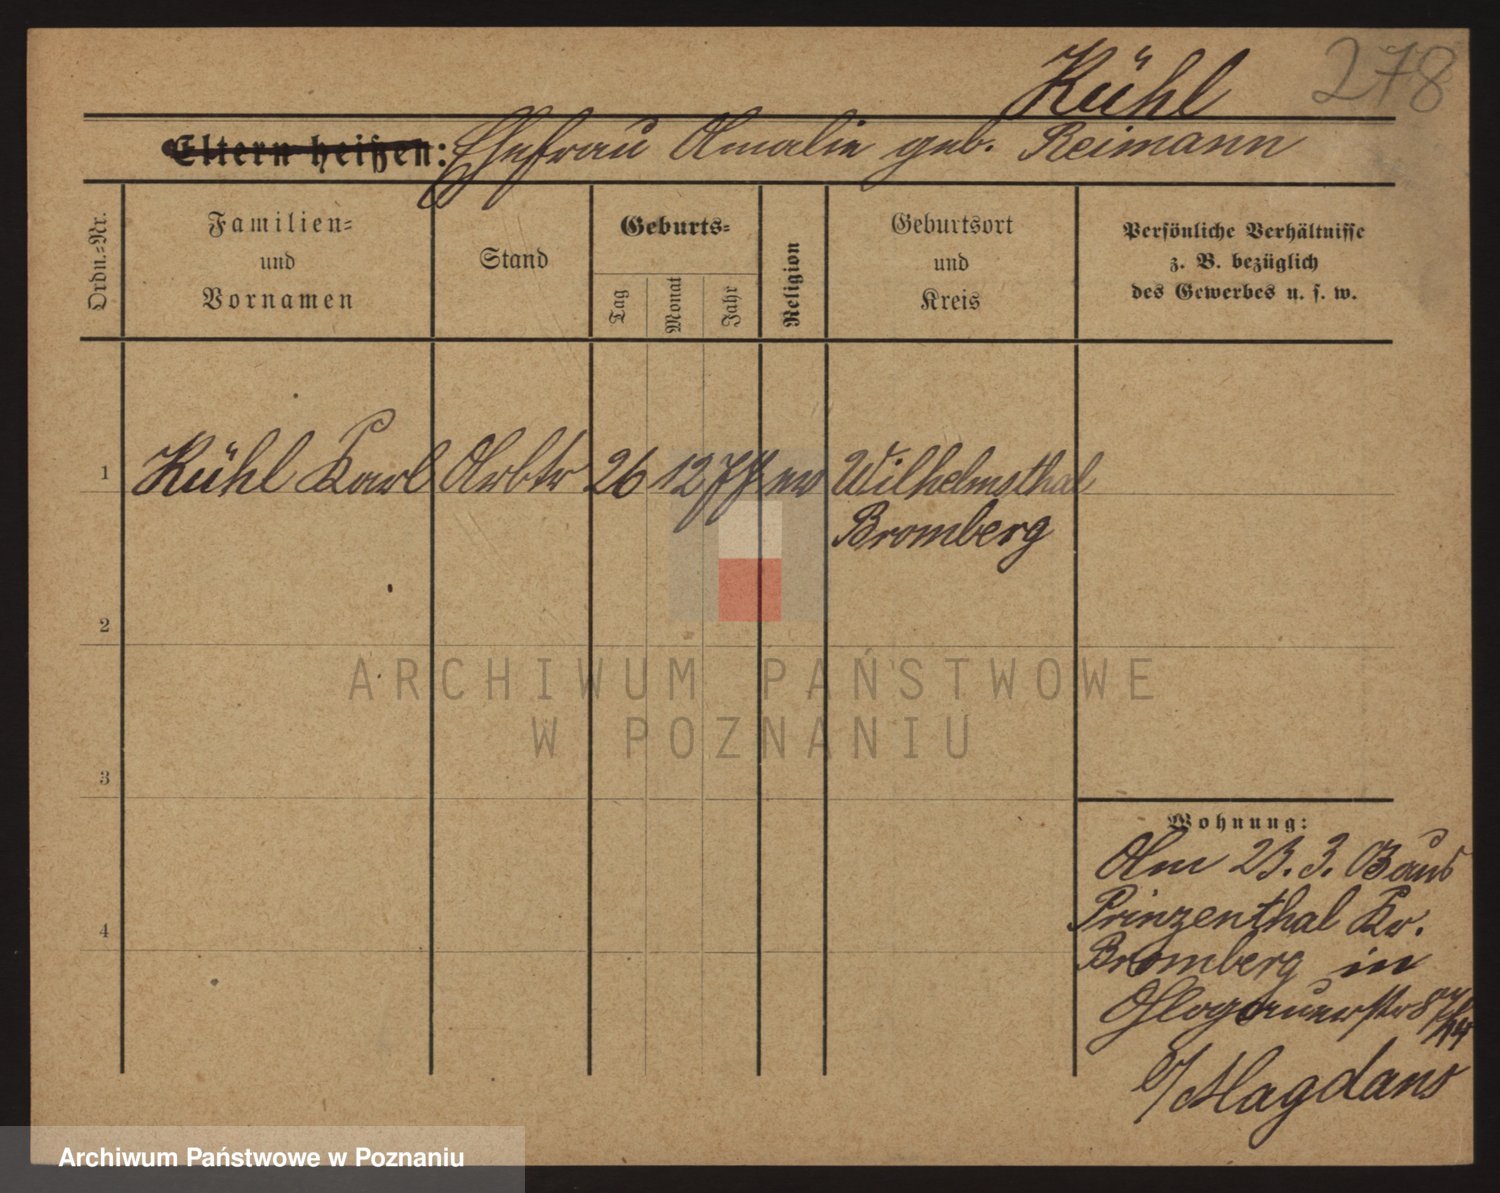 278
Kühl
Eltern heißen: Ehefrau Amalie geb. Reimann
Ordn.-Nr.
Familien- und Vornamen
Stand
Geburts-
Tag
Monat
Jahr
Religion
Geburtsort und Kreis
Persönliche Verhältnisse z. B. bezüglich des Gewerbes u. s. w.
1 Kühl Karl Arbtr 26 12 77 ev Wilhelmsthal
Bromberg
2
ARCHIWUM PAŃSTWOWE
W POZNANIU
3
Wohnung:
Am 23.3. aus
Prinzenthal Kr.
4
Bromberg in
Glogauerstr
b/Magdans
Archiwum Państwowe w Poznaniu